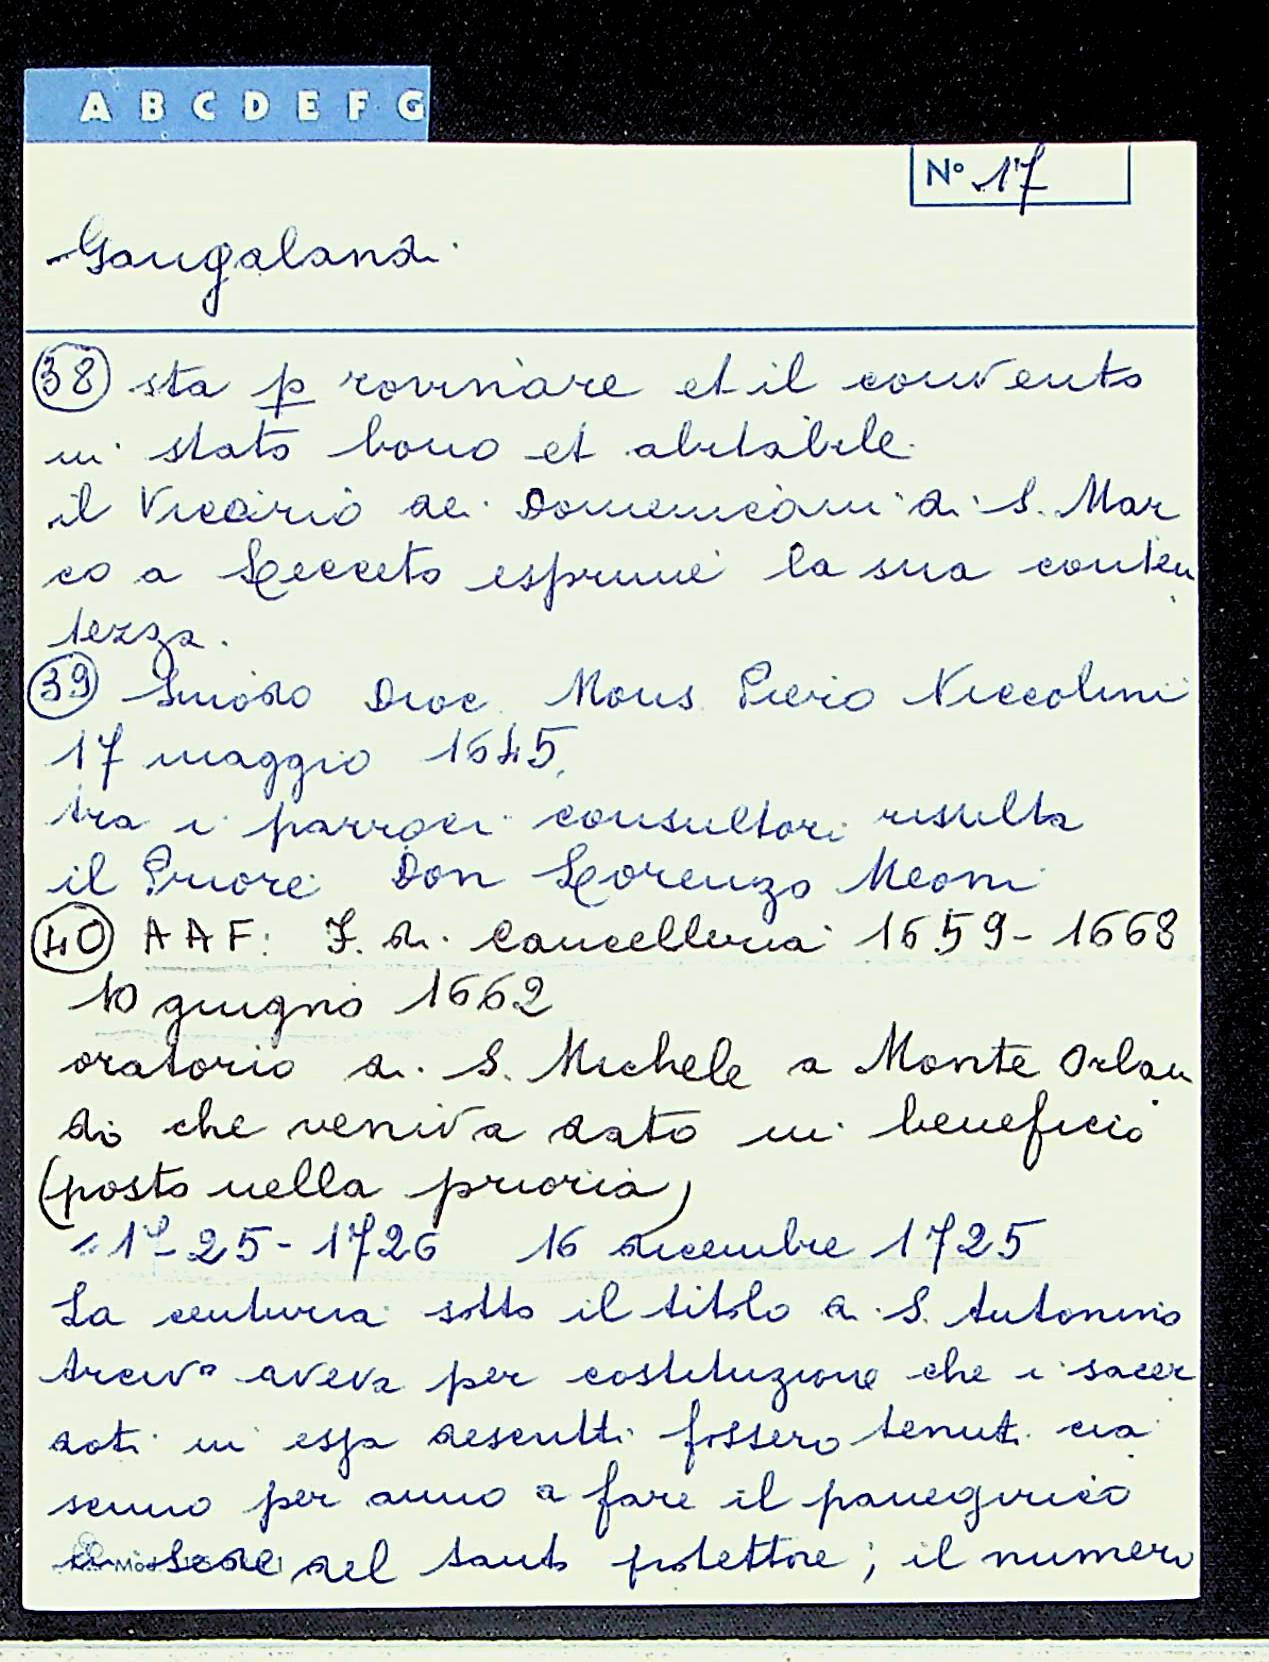 A B C D E F G
N° 17
Gangalandi
38 sta p rovinare et il convento
in stato bono et abitabile.
il Vicario dei Domenicani di S. Mar
co a Lecceto esprime la sua conten
tezza.
39 Sinodo Dioc. Mons. Piero Niccolini
17 maggio 1645,
tra i parroci consultori risulta
il Priore Don Lorenzo Meoni
40 AAF: F. di Cancelleria 1659-1668
10 giugno 1662
oratorio di S. Michele a Monte Orlan
do che veniva dato in beneficio
(posto nella prioria)
1725-1726 16 dicembre 1725
La centuria sotto il titolo di S. Antonino
Arcivo aveva per costituzione che i sacer
doti in essa descritti fossero tenuti cia
scuno per anno a fare il panegirico
in lode del santo protettore; il numero